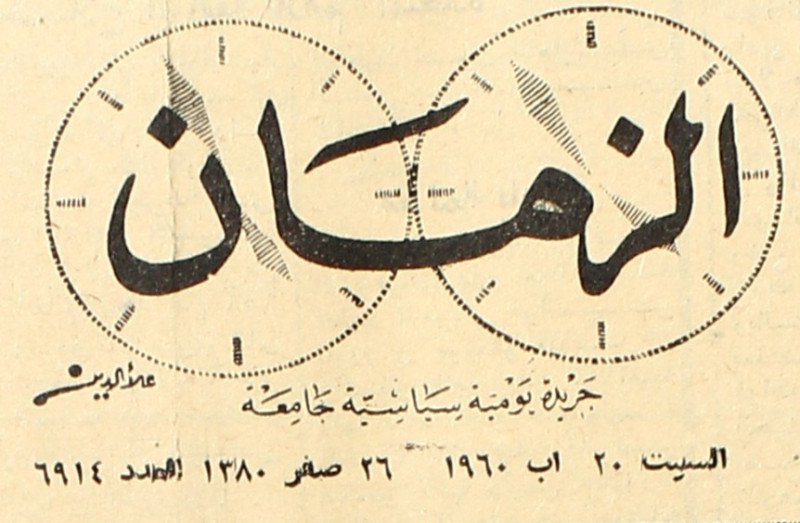 الزمان
علاءالدين
جريدة يومية سياسية جامعة
السبت ٢٠ اب ١٩٦٠ ٢٦ صفر ١٣٨٠ العدد ٦٩١٤